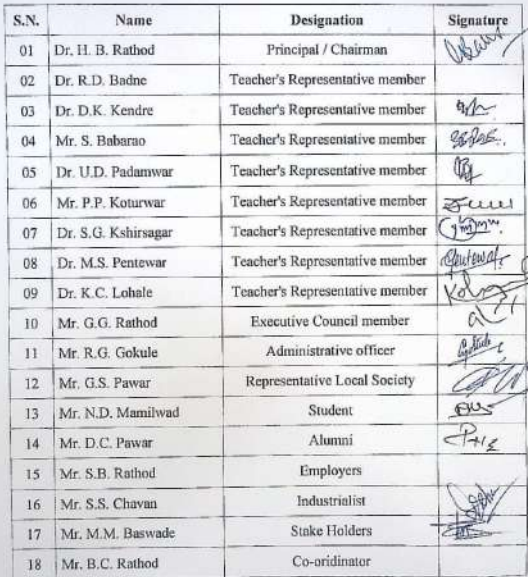 S.N. Name Designation Signature
01 Dr. H. B. Rathod Principal / Chairman
02 Dr. R.D. Badne Teacher's Representative member
03 Dr. D.K. Kendre Teacher's Representative member
04 Mr. S. Babarao Teacher's Representative member
05 Dr. U.D. Padamwar Teacher's Representative member
06 Mr. P.P. Koturwar Teacher's Representative member
07 Dr. S.G. Kshirsagar Teacher's Representative member
08 Dr. M.S. Pentewar Teacher's Representative member
09 Dr. K.C. Lohale Teacher's Representative member
10 Mr. G.G. Rathod Executive Council member
11 Mr. R.G. Gokule Administrative officer
12 Mr. G.S. Pawar Representative Local Society
13 Mr. N.D. Mamilwad Student
14 Mr. D.C. Pawar Alumni
15 Mr. S.B. Rathod Employers
16 Mr. S.S. Chavan Industrialist
17 Mr. M.M. Baswade Stake Holders
18 Mr. B.C. Rathod Co-oridinator